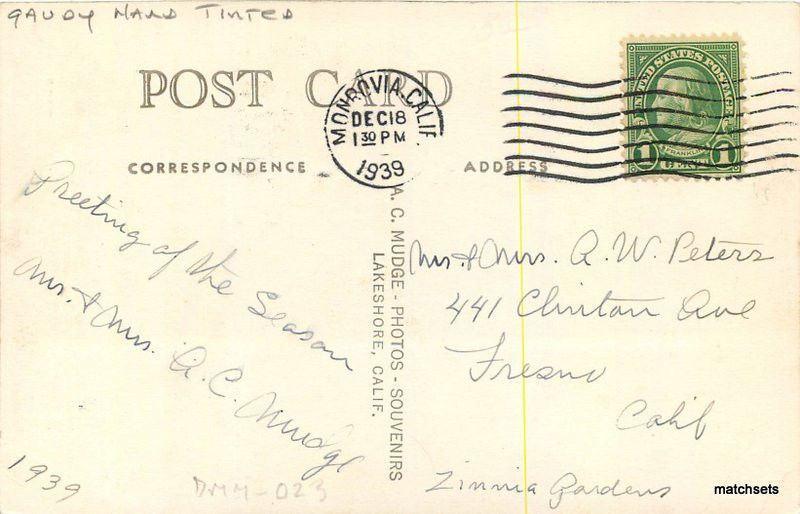 GAUDY HAND TINTED
POST CARD
MONROVIA, CALIF.
DEC 18
1 30 PM
1939
UNITED STATES POSTAGE
FRANKLIN
1 CENT 1
CORRESPONDENCE
ADDRESS
Greeting of the Season
Mr. & Mrs. A. C. Mudge
1939
DMM-023
A. C. MUDGE - PHOTOS - SOUVENIRS
LAKESHORE, CALIF.
Mr. & Mrs. A. W. Peters
441 Clinton Ave
Fresno
Calif
Zinnia Gardens
matchsets